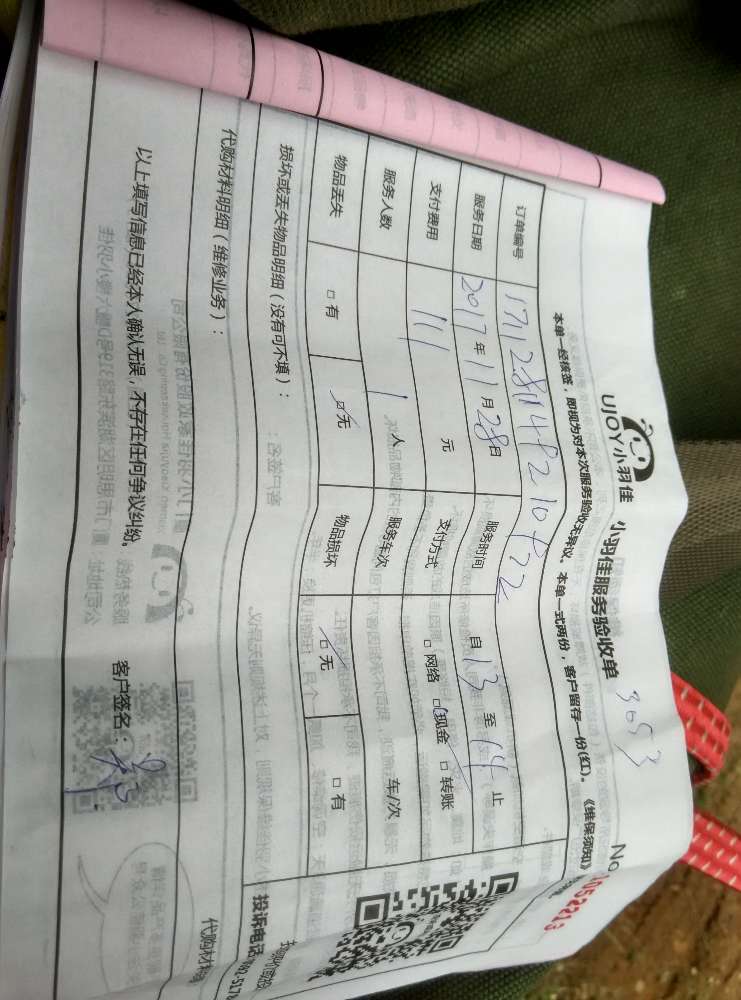 UJOY小羽佳
小羽佳服务验收单
3053
No.1052213
本单一经核签，即视为对本次服务验收无异议。本单一式两份，客户留存一份(红)。《维保须知》
订单编号
服务日期 2017年11月28日 服务时间 自13至14止
支付费用 111 元 支付方式 □网络 □现金 □转账
服务人数 1 人 服务车次 车/次
物品丢失 □有 □无 物品损坏 □无 □有
损坏或丢失物品明细（没有可不填）：
代购材料明细（维修业务）：
代购材料
投诉电话
以上填写信息已经本人确认无误，不存在任何争议纠纷。
客户签名：